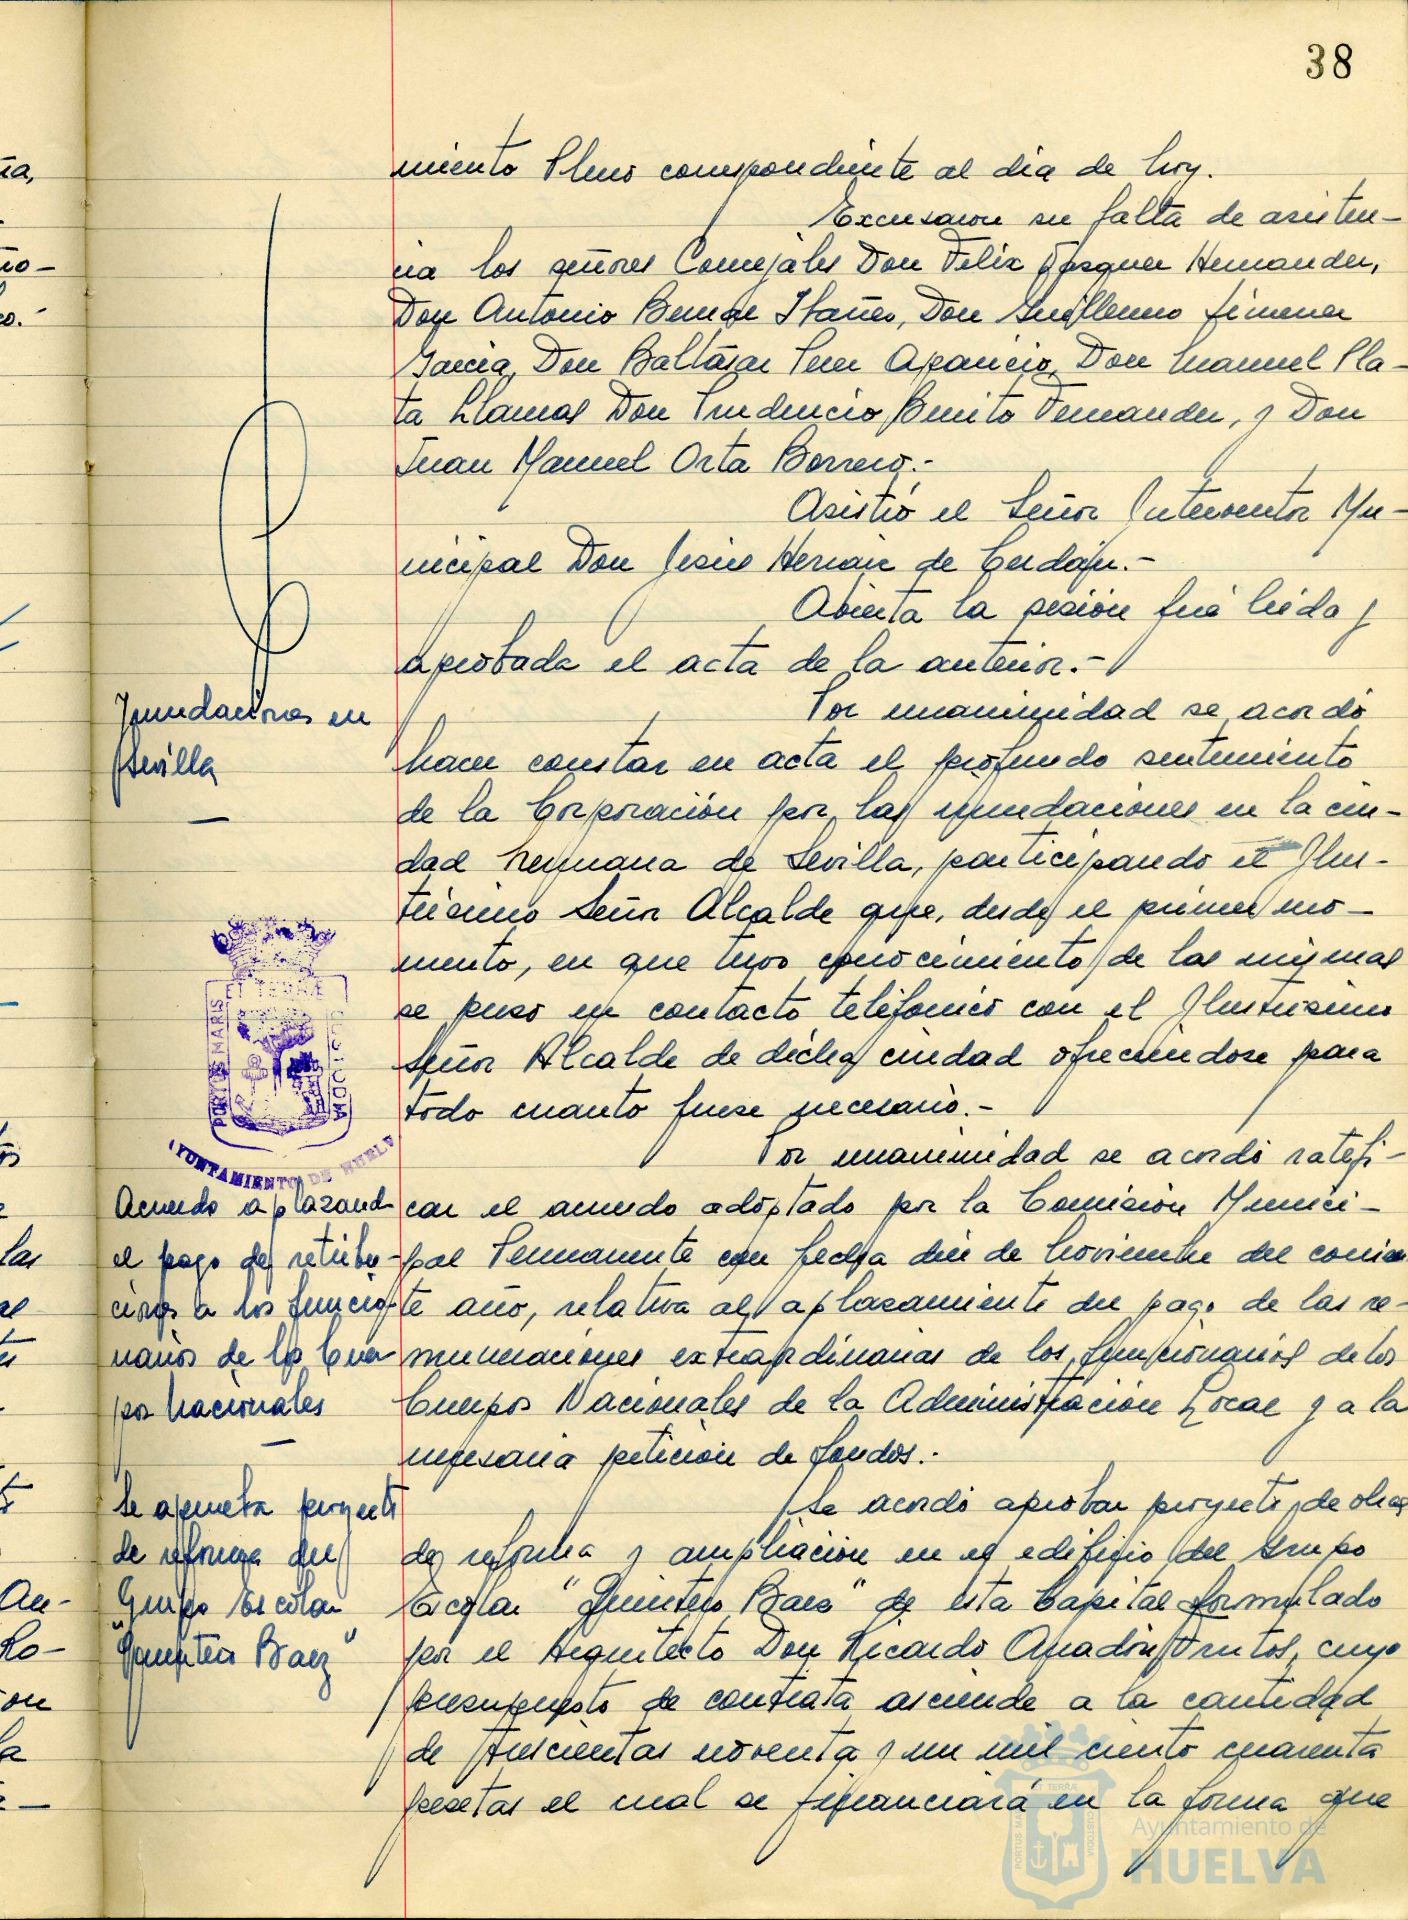 38
miento Pleno correspondiente al dia de hoy.
Excusaron su falta de asisten-
cia los señores Concejales Don Felix Vazquez Hernandez,
Don Antonio Bernal Ibañez, Don Guillermo Jimenez
Garcia, Don Baltasar Perez Aparicio, Don Manuel Pla-
ta Llamas Don Prudencio Benito Fernandez, y Don
Juan Manuel Orta Borrero.-
Asistió el Señor Interventor Mu-
nicipal Don Jesús Hernaiz de Cerdán.-
Abierta la sesión fué leida y
aprobada el acta de la anterior.-
Inundaciones en
Sevilla
Por unanimidad se acordó
hacer constar en acta el profundo sentimiento
de la Corporación por las inundaciones en la ciu-
dad hermana de Sevilla, participando el Ilus-
trisimo Señor Alcalde que, desde el primer mo-
mento, en que tuvo conocimiento de las mismas
se puso en contacto teléfonico con el Ilustrisimo
Señor Alcalde de dicha ciudad ofreciendose para
todo cuanto fuese necesario.-
PORTUS MARIS ET TERRÆ CUSTODIA
AYUNTAMIENTO DE HUELV
Acuerdo aplazand
el pago de retribu-
ciones a los funcio-
narios de los Cuer
pos Nacionales
Por unanimidad se acordó ratifi-
car el acuerdo adoptado por la Comisión Munici-
pal Permanente con fecha diez de Noviembre del corrien
te año, relativa al aplazamiento del pago de las re-
muneraciones extraordinarias de los funcionarios de los
Cuerpos Nacionales de la Administración Local y a la
necesaria petición de fondos.-
Se aprueba proyecto
de reforma del
Grupo Escolar
"Quintero Baez"
Se acordó aprobar proyecto de obras
de reforma y ampliación en el edificio del Grupo
Escolar "Quintero Baez" de esta Capital formulado
por el Arquitecto Don Ricardo Anadón Frutos, cuyo
presupuesto de contrata asciende a la cantidad
de trescientas noventa y un mil ciento cuarenta
pesetas el cual se financiará en la forma que
Ayuntamiento de
HUELVA